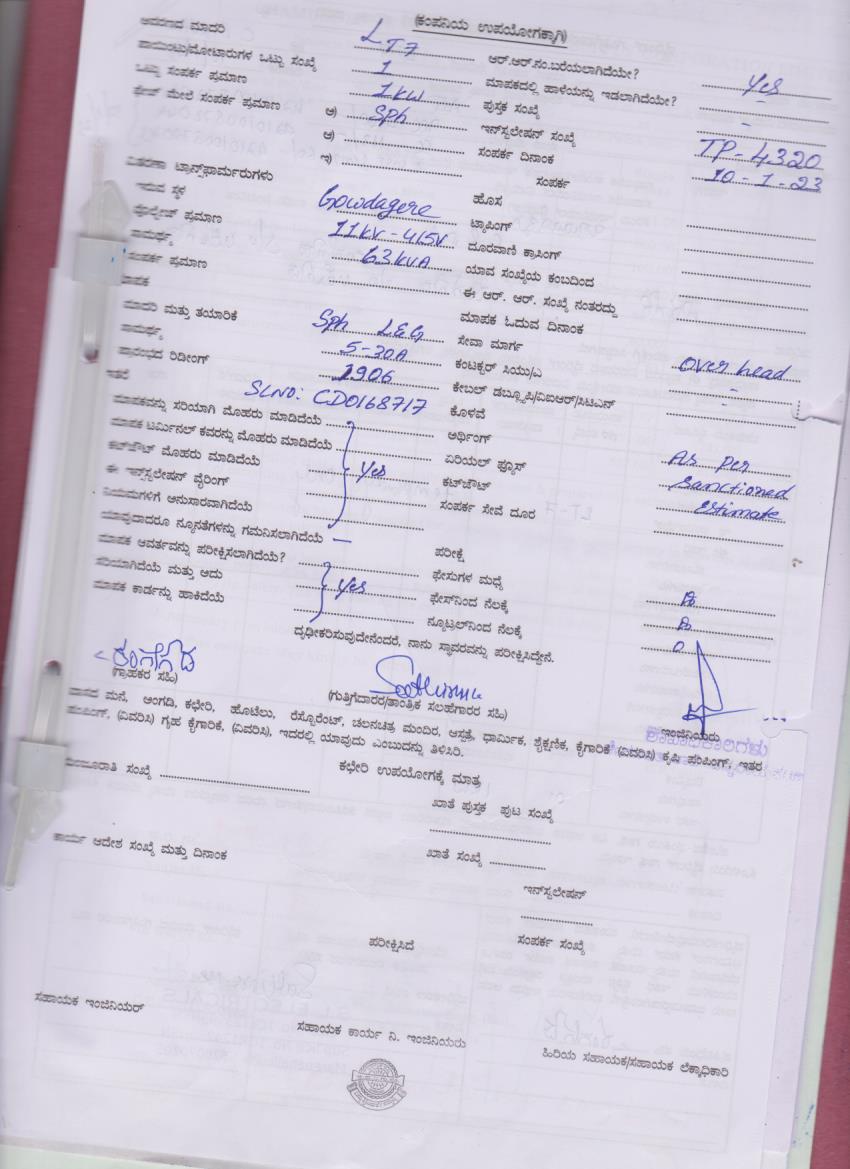 (ಕಂಪನಿಯ ಉಪಯೋಗಕ್ಕಾಗಿ)
ಆವರಣದ ಮಾದರಿ LT7 ಆರ್.ಆರ್.ನಂ.ಬರೆಯಲಾಗಿದೆಯೇ? Yes
ಪಾಯಿಂಟು/ಮೋಟಾರುಗಳ ಒಟ್ಟು ಸಂಖ್ಯೆ 1 ಮಾಪಕದಲ್ಲಿ ಹಾಳೆಯನ್ನು ಇಡಲಾಗಿದೆಯೇ? -
ಒಟ್ಟು ಸಂಪರ್ಕ ಪ್ರಮಾಣ 1KW ಪುಸ್ತಕ ಸಂಖ್ಯೆ -
ಫೇಸ್ ಮೇಲೆ ಸಂಪರ್ಕ ಪ್ರಮಾಣ ಅ) Sph ಇನ್‌ಸ್ಟಲೇಷನ್ ಸಂಖ್ಯೆ TP-4320
ಆ) ಸಂಪರ್ಕ ದಿನಾಂಕ 10-1-23
ಇ) ಸಂಪರ್ಕ
ವಿತರಣಾ ಟ್ರಾನ್ಸ್‌ಫಾರ್ಮರುಗಳು ಹೊಸ
ಇರುವ ಸ್ಥಳ Gowdagere ಟ್ಯಾಪಿಂಗ್
ವೋಲ್ಟೇಜ್ ಪ್ರಮಾಣ 11KV-415V ದೂರವಾಣಿ ಕ್ರಾಸಿಂಗ್
ಸಾಮರ್ಥ್ಯ 63KVA ಯಾವ ಸಂಖ್ಯೆಯ ಕಂಬದಿಂದ
ಸಂಪರ್ಕ ಪ್ರಮಾಣ ಈ ಆರ್. ಆರ್. ಸಂಖ್ಯೆ ನಂತರದ್ದು
ಮಾಪಕ ಮಾಪಕ ಓದುವ ದಿನಾಂಕ
ಮಾದರಿ ಮತ್ತು ತಯಾರಿಕೆ Sph L&G ಸೇವಾ ಮಾರ್ಗ
ಸಾಮರ್ಥ್ಯ 5-30A ಕಂಟಕ್ಟರ್ ಸಿಯು/ಎ Over head
ಪ್ರಾರಂಭದ ರಿಡೀಂಗ್ 1906 ಕೇಬಲ್ ಡಬ್ಲ್ಯೂಪಿ/ವಿಐಆರ್/ಸಿಟಿಎಸ್ -
ಇತರೆ SLNO: CD0168717 ಕೊಳವೆ
ಮಾಪಕವನ್ನು ಸರಿಯಾಗಿ ಮೊಹರು ಮಾಡಿದೆಯೆ ಅರ್ಥಿಂಗ್
ಮಾಪಕ ಟರ್ಮಿನಲ್ ಕವರನ್ನು ಮೊಹರು ಮಾಡಿದೆಯೆ ಏರಿಯಲ್ ಫ್ಯೂಸ್ As per
ಕಟ್‌ಔಟ್ ಮೊಹರು ಮಾಡಿದೆಯೆ Yes ಕಟ್‌ಔಟ್ Sanctioned
ಈ ಇನ್ಸ್ಟಲೇಷನ್ ವೈರಿಂಗ್ ಸಂಪರ್ಕ ಸೇವೆ ದೂರ Estimate
ನಿಯಮಗಳಿಗೆ ಅನುಸಾರವಾಗಿದೆಯೆ
ಯಾವುದಾದರೂ ನ್ಯೂನತೆಗಳನ್ನು ಗಮನಿಸಲಾಗಿದೆಯೆ — ಪರೀಕ್ಷೆ
ಮಾಪಕ ಆವರ್ತವನ್ನು ಪರೀಕ್ಷಿಸಲಾಗಿದೆಯೆ? ಫೇಸುಗಳ ಮಧ್ಯೆ
ಸರಿಯಾಗಿದೆಯೆ ಮತ್ತು ಅದು Yes ಫೇಸ್‌ನಿಂದ ನೆಲಕ್ಕೆ
ಮಾಪಕ ಕಾರ್ಡನ್ನು ಹಾಕಿದೆಯೆ ನ್ಯೂಟ್ರಲ್‌ನಿಂದ ನೆಲಕ್ಕೆ
ದೃಢೀಕರಿಸುವುದೇನೆಂದರೆ, ನಾನು ಸ್ಥಾವರವನ್ನು ಪರೀಕ್ಷಿಸಿದ್ದೇನೆ.
(ಗ್ರಾಹಕರ ಸಹಿ) (ಗುತ್ತಿಗೆದಾರರ/ತಾಂತ್ರಿಕ ಸಲಹೆಗಾರರ ಸಹಿ) ಇಂಜಿನಿಯರು
ಶಾಖಾಧಿಕಾರಿಗಳು
ವಾಸದ ಮನೆ, ಅಂಗಡಿ, ಕಛೇರಿ, ಹೊಟೆಲು, ರೆಸ್ಟೋರೆಂಟ್, ಚಲನಚಿತ್ರ ಮಂದಿರ, ಆಸ್ಪತ್ರೆ, ಧಾರ್ಮಿಕ, ಶೈಕ್ಷಣಿಕ, ಕೈಗಾರಿಕೆ (ವಿವರಿಸಿ) ಕೃಷಿ ಪಂಪಿಂಗ್, ಇತರ
ಪಂಪಿಂಗ್, (ವಿವರಿಸಿ) ಗೃಹ ಕೈಗಾರಿಕೆ, (ವಿವರಿಸಿ), ಇದರಲ್ಲಿ ಯಾವುದು ಎಂಬುದನ್ನು ತಿಳಿಸಿರಿ.
ಕಛೇರಿ ಉಪಯೋಗಕ್ಕೆ ಮಾತ್ರ
ಮಂಜೂರಾತಿ ಸಂಖ್ಯೆ ಖಾತೆ ಪುಸ್ತಕ ಪುಟ ಸಂಖ್ಯೆ
ಕಾರ್ಯ ಆದೇಶ ಸಂಖ್ಯೆ ಮತ್ತು ದಿನಾಂಕ ಖಾತೆ ಸಂಖ್ಯೆ
ಇನ್‌ಸ್ಟಲೇಷನ್
ಪರೀಕ್ಷಿಸಿದೆ ಸಂಪರ್ಕ ಸಂಖ್ಯೆ
ಸಹಾಯಕ ಇಂಜಿನಿಯರ್ ಸಹಾಯಕ ಕಾರ್ಯ ನಿ. ಇಂಜಿನಿಯರು ಹಿರಿಯ ಸಹಾಯಕ/ಸಹಾಯಕ ಲೆಕ್ಕಾಧಿಕಾರಿ